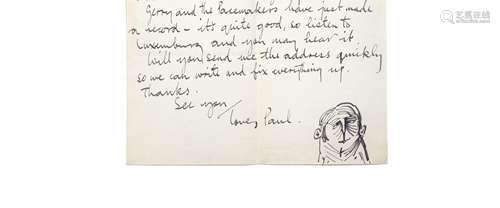 Gerry and the Pacemakers have just made
a record – it's quite good, so listen to
Luxemburg and you may hear it.
Will you send me the address quickly
so we can write and fix everything up.
Thanks.
See you
love, Paul.